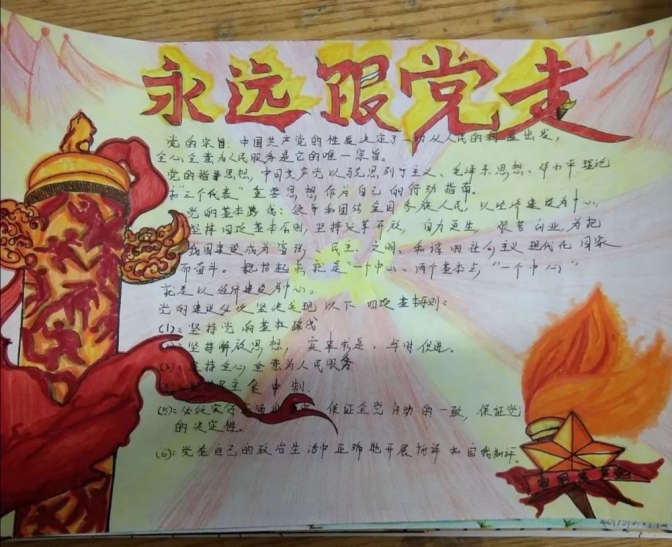 永远跟党走
党的宗旨:中国共产党的性质决定了一切从人民的利益出发,
全心全意为人民服务是它的唯一宗旨。
党的指导思想,中国共产党以马克思列宁主义、毛泽东思想、邓小平理论
和"三个代表"重要思想作为自己的行动指南。
党的基本路线:领导和团结全国各族人民,以经济建设为中心,
坚持四项基本原则,坚持改革开放,自力更生 艰苦创业,为把
我国建设成为富强、民主、文明、和谐的社会主义现代化国家
而奋斗。概括起来就是"一个中心、两个基本点,"一个中心"
就是以经济建设为中心。
党的建设必须坚决实现以下四项基本
(1):坚持党的基本路线
坚持解放思想,实事求是,与时俱进。
坚持全心全意为人民服务
坚持民主集中制
(5): 保证全党行动的一致,保证党
的决定性。
(6):党在自己的政治生活中正确地开展批评和自我批评。